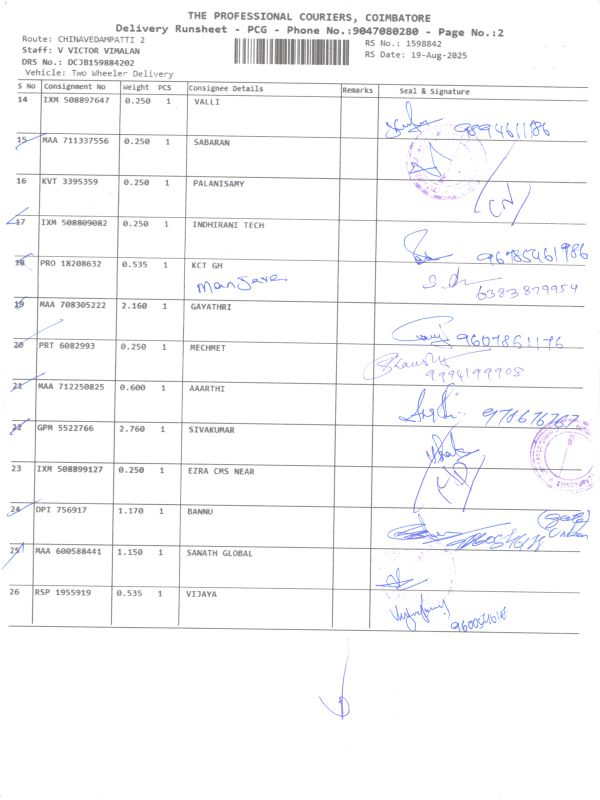 THE PROFESSIONAL COURIERS, COIMBATORE
Delivery Runsheet - PCG - Phone No.:9047080280 - Page No.:2
Route: CHINAVEDAMPATTI 2 RS No.: 1598842
Staff: V VICTOR VIMALAN RS Date: 19-Aug-2025
DRS No.: DCJB159884202
Vehicle: Two Wheeler Delivery
S No Consignment No Weight PCS Consignee Details Remarks Seal & Signature
14 IXM 508897647 0.250 1 VALLI
9894611186
15 MAA 711337556 0.250 1 SABARAN
16 KVT 3395359 0.250 1 PALANISAMY
17 IXM 508809082 0.250 1 INDHIRANI TECH
96785461986
18 PRO 18208632 0.535 1 KCT GH
Manjare 6383879954
19 MAA 708305222 2.160 1 GAYATHRI
9607851176
20 PRT 6082993 0.250 1 MECHMET
9994199908
21 MAA 712250825 0.600 1 AAARTHI
978676767
22 GPM 5522766 2.760 1 SIVAKUMAR
23 IXM 508899127 0.250 1 EZRA CMS NEAR
24 DPI 756917 1.170 1 BANNU
25 MAA 600588441 1.150 1 SANATH GLOBAL
26 RSP 1955919 0.535 1 VIJAYA